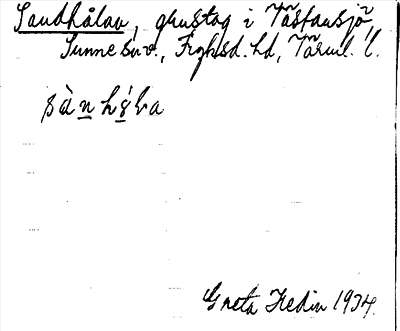 Sandhålan, grustag i Västansjö,
Sunne sn., Fryksd. hd, Värml. l.
sànhola
Greta Hedin 1934.